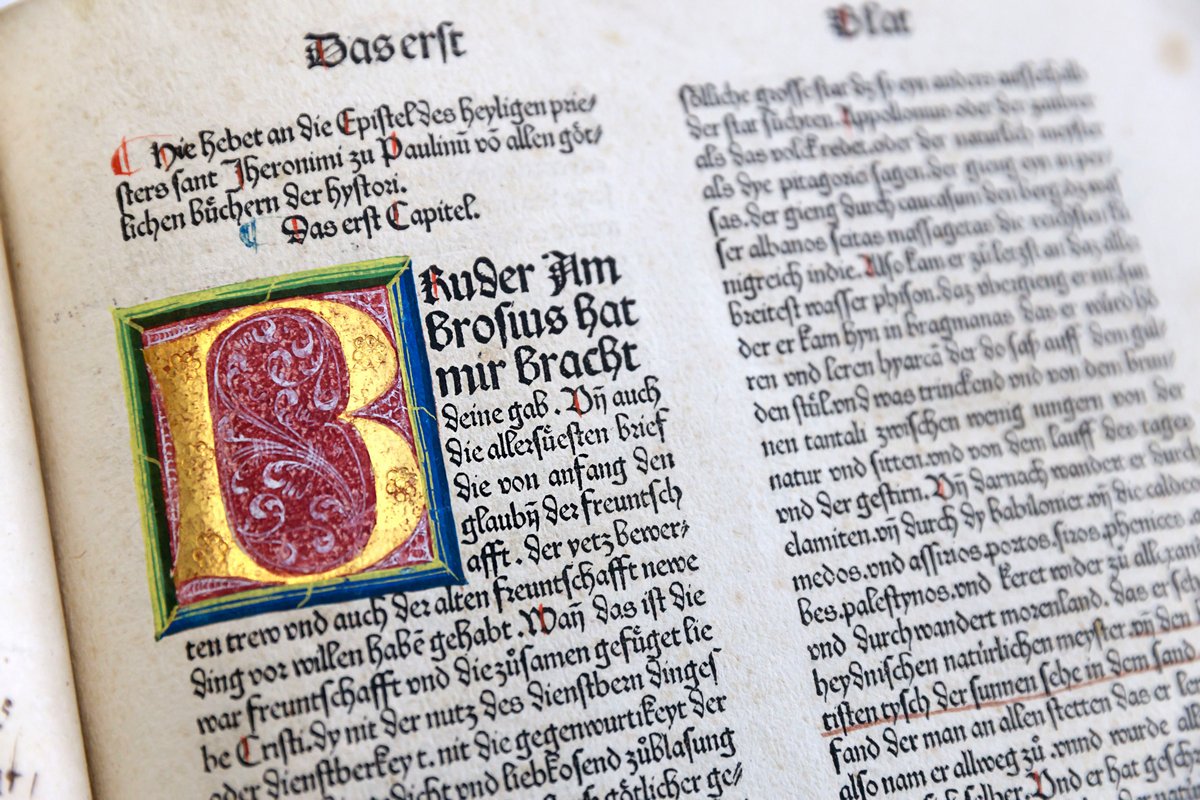 Das erst
Hie hebet an die Epistel des heyligen prie⸗
sters sant Jheronimi zu Paulinū vō allen göt⸗
lichen bůchern der hystori.
Das erst Capitel.
Bruder Am
brosius hat
mir bracht
deine gab. Vn̄ auch
die allersüesten brief
die von anfang den
glaubn̄ der freuntsch
afft. der yetz bewer⸗
ten trew vnd auch der alten freuntschafft newe
ding vor willen habē gehabt. Wan̄ das ist die
war freuntschafft vnd die zůsamen gefüget lie
be Cristi. dy mit der nutz des dienstbern dinges
oder dienstberkeyt. nit die gegenwurtikeyt der
vnd liebkosend zůblasung
götlicher ge⸗
Plat
sölliche grosse stat dz sy eyn anders ausserhalb
der stat sůchten. Appollonius oder der zaubrer
als das volck redet. oder der naturlich meyster
als dye pitagorici sagen. der gieng eyn in per⸗
sas. der gieng durch caucasum den berg. dy
ser albanos scitas massagetas die reichsten kü
nigreich indie. Also kam er zů letzst an das aller
breitest wasser phison. daz vbergieng er
der er kam hyn in bragmanas das er
ren vnd leren hyarcā der do saß auff dem gul⸗
den stůl. vnd was trinckend von dem brun⸗
nen tantali zwischen wenig iungern von der
natur vnd sitten. vnd von dem lauff des tages
vnd der gestirn. Vn̄ darnach wandert er durch
elamiten. vn̄ durch dy babilonier. vn̄ die caldeer
medos. vnd assirios. portos. siros. phenices
bes. palestynos. vnd keret wider zů allexan
vnd durchwandert morenland. das er seh
heydnischen natürlichen meyster. vn̄ den
tisten tysch der sunnen sehe in dem sand.
fand der man an allen stetten das er
also nam er allweg zů. vnnd wurde alle
selber. Vnd er hat gesch